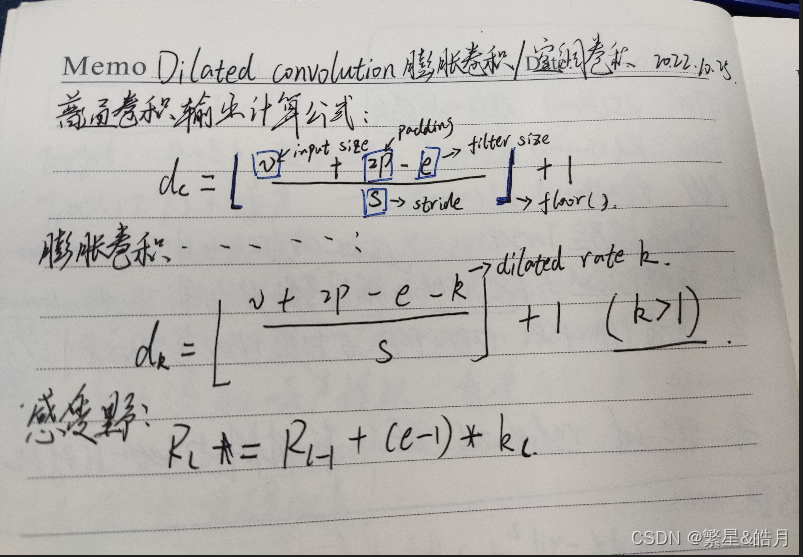 Memo Dilated convolution 膨胀卷积/空洞卷积 2022.10.25.
普通卷积输出计算公式:
padding
input size
filter size
d_c = ⌊ (v + 2p - e) / s ⌋ + 1
stride
floor().
膨胀卷积 - - - - - :
dilated rate k.
d_k = [ (v + 2p - e - k) / s ] + 1 (k>1).
感受野:
R_L *= R_{L-1} + (e-1) * k_L.
CSDN @繁星&皓月